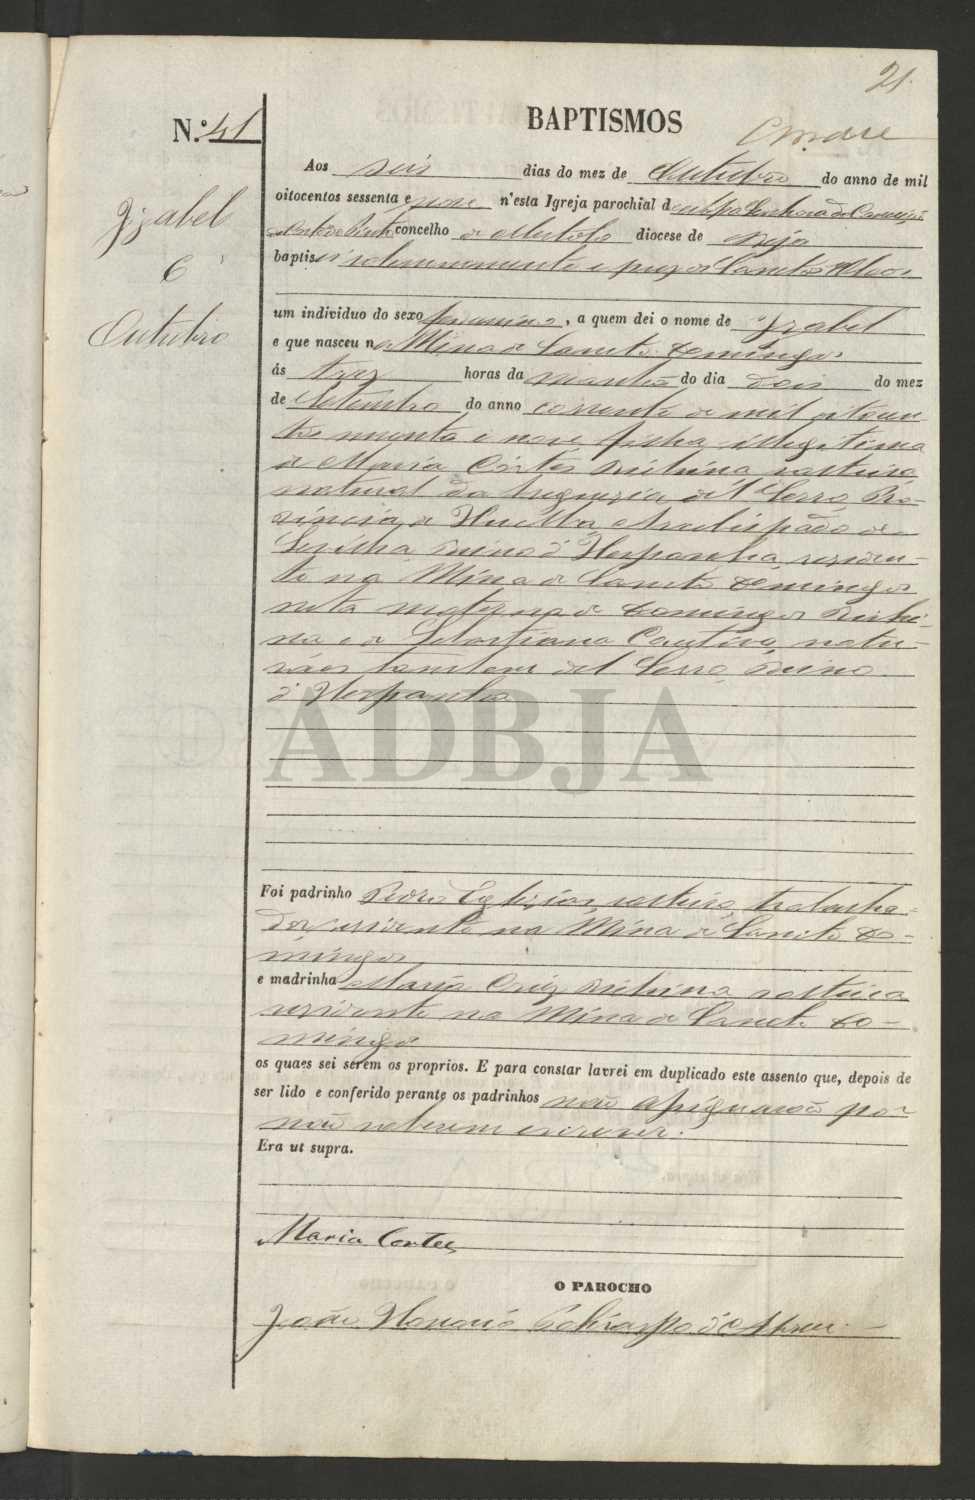 21.
N.º 41
BAPTISMOS
Izabel
6
Outubro
Aos seis dias do mez de Outubro do anno de mil
oitocentos sessenta e nove n'esta Igreja parochial de Senhora da Conceição
concelho de Mertola diocese de Beja
baptisei solemnemente e puz os Sanctos Oleos
um individuo do sexo femenino, a quem dei o nome de Izabel
e que nasceu na Mina de Sancto Domingos
ás trez horas da manhã do dia dois do mez
de Setembro do anno corrente de mil oitocen
tos sessenta e nove filha illegitima
de Maria Cortes solteira
natural da freguezia del Cerro Pro-
vincia de Huelva Arcebispado de
Sevilha Reino d'Hespanha, residen-
te na Mina de Sancto Domingos
neta materna de Domingos
na e de Sebastiana natu-
raes tambem del Cerro, Reino
d'Hespanha
ADBJA
Foi padrinho Pedro solteiro, trabalha-
dor residente na Mina de Sancto Do-
mingos
e madrinha Maria solteira
residente na Mina de Sancto Do-
mingos
os quaes sei serem os proprios. E para constar lavrei em duplicado este assento que, depois de
ser lido e conferido perante os padrinhos não assignarão por
não saberem escrever.
Era ut supra.
Maria Cortes
O PAROCHO
João d'Abreu